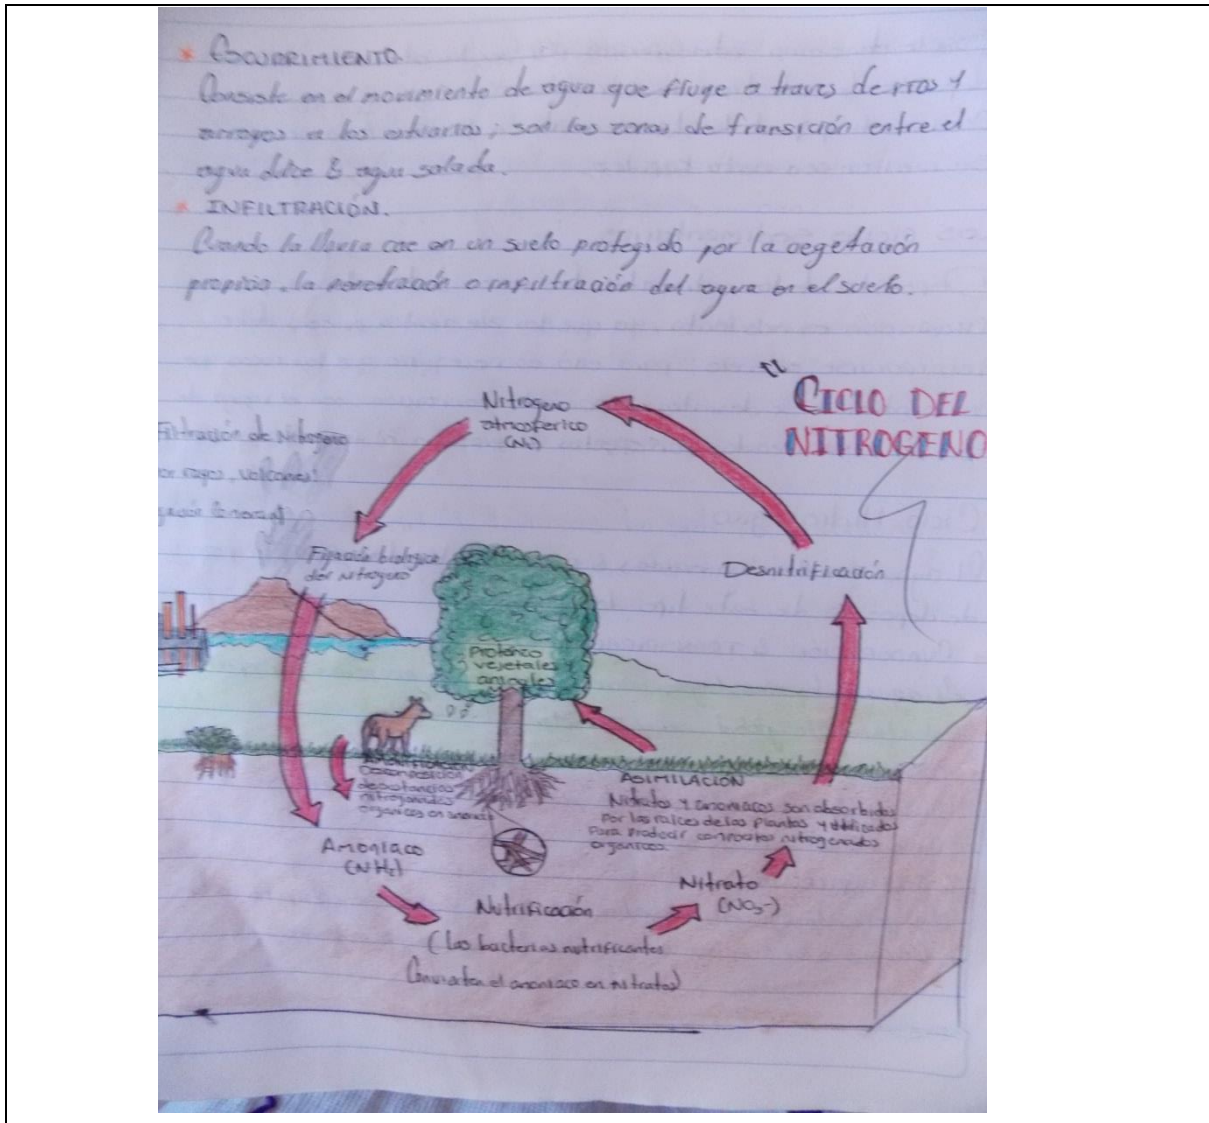 * ESCURRIMIENTO.
Consiste en el movimiento de agua que fluye a traves de rios y
arroyos a los estuarios; son las zonas de transición entre el
agua dulce & agua salada.
* INFILTRACIÓN.
Cuando la lluvia cae en un suelo protegido por la vegetación
propicia la penetración o infiltración del agua en el suelo.
" CICLO DEL
NITROGENO
Nitrogeno
atmosferico
Filtración de Nitrogeno
rayos, volcanes
Fijación biologica
del nitrogeno
Desnitrificación
vejetales y
animales
Descomposición
nitrogenadas
organicos en
ASIMILACIÓN
Nitratos y amoniacos son absorbidos
por las raices de las plantas y utilizados
para producir compuestos nitrogenados
organicos.
Amoniaco
Nitrato
(NO3-)
Nutrificación
(las bacterias nutrificantes
Convierten el amoniaco en nitratos)